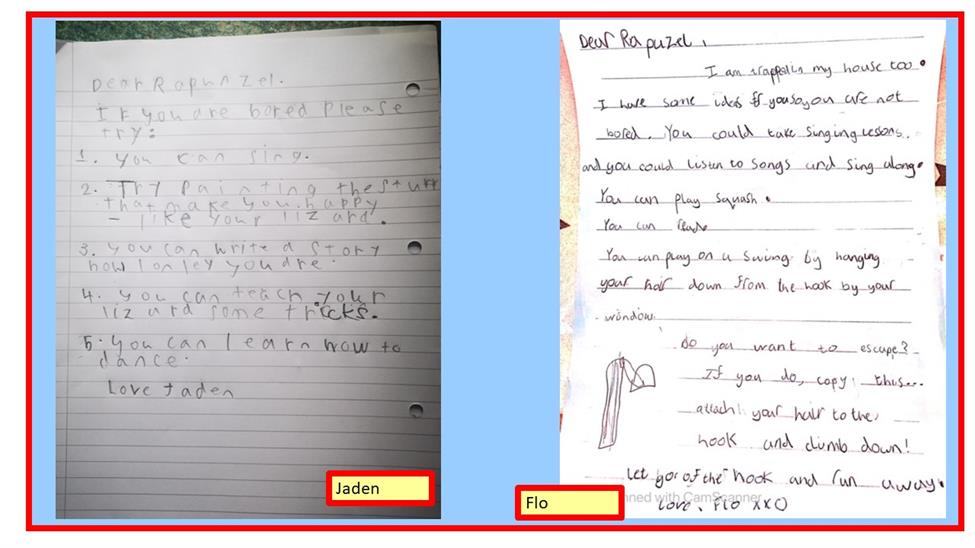 Dear Rapunzel.
If you are bored please
try:
1. you can sing.
2. Try painting the stuff
that make you happy
- like your lizard.
3. you can write a story
how lonley you are.
4. you can teach your
lizard some tricks.
5. you can learn how to
dance.
Love Jaden
Jaden
Dear Rapuzel,
I am trapped in my house too.
I have some ideas so you are not
bored. You could take singing lessons.
and you could listen to songs and sing along.
You can play squash.
You can
You can play on a swing by hanging
your hair down from the hook by your
window.
Do you want to escape?
If you do, copy this...
attach your hair to the
hook and climb down!
Let gor of the hook and run away.
Love, Flo xxO
nned with CamScanner
Flo